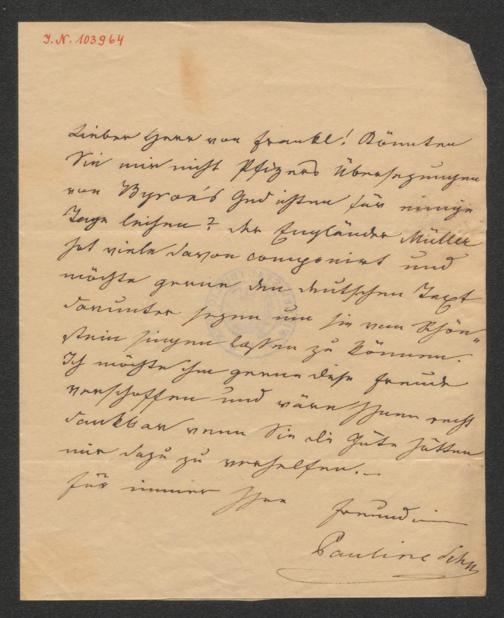 I.N. 103964
Lieber Herr von Frankl! Könnten
Sie mir nicht Pfizers Übersezungen
von Byron's Gedichten für einige
Tage leihen? der Engländer Müller
hat viele davon componirt und
möchte gerne den deutschen Text
darunter sezen um sie vom Schön-
stein singen lassen zu können.
Ich möchte ihm gerne diese Freude
verschaffen und wäre Ihnen recht
dankbar wenn Sie die Güte hätten
mir dazu zu verhelfen. –
Für immer Ihre Freundin
Pauline